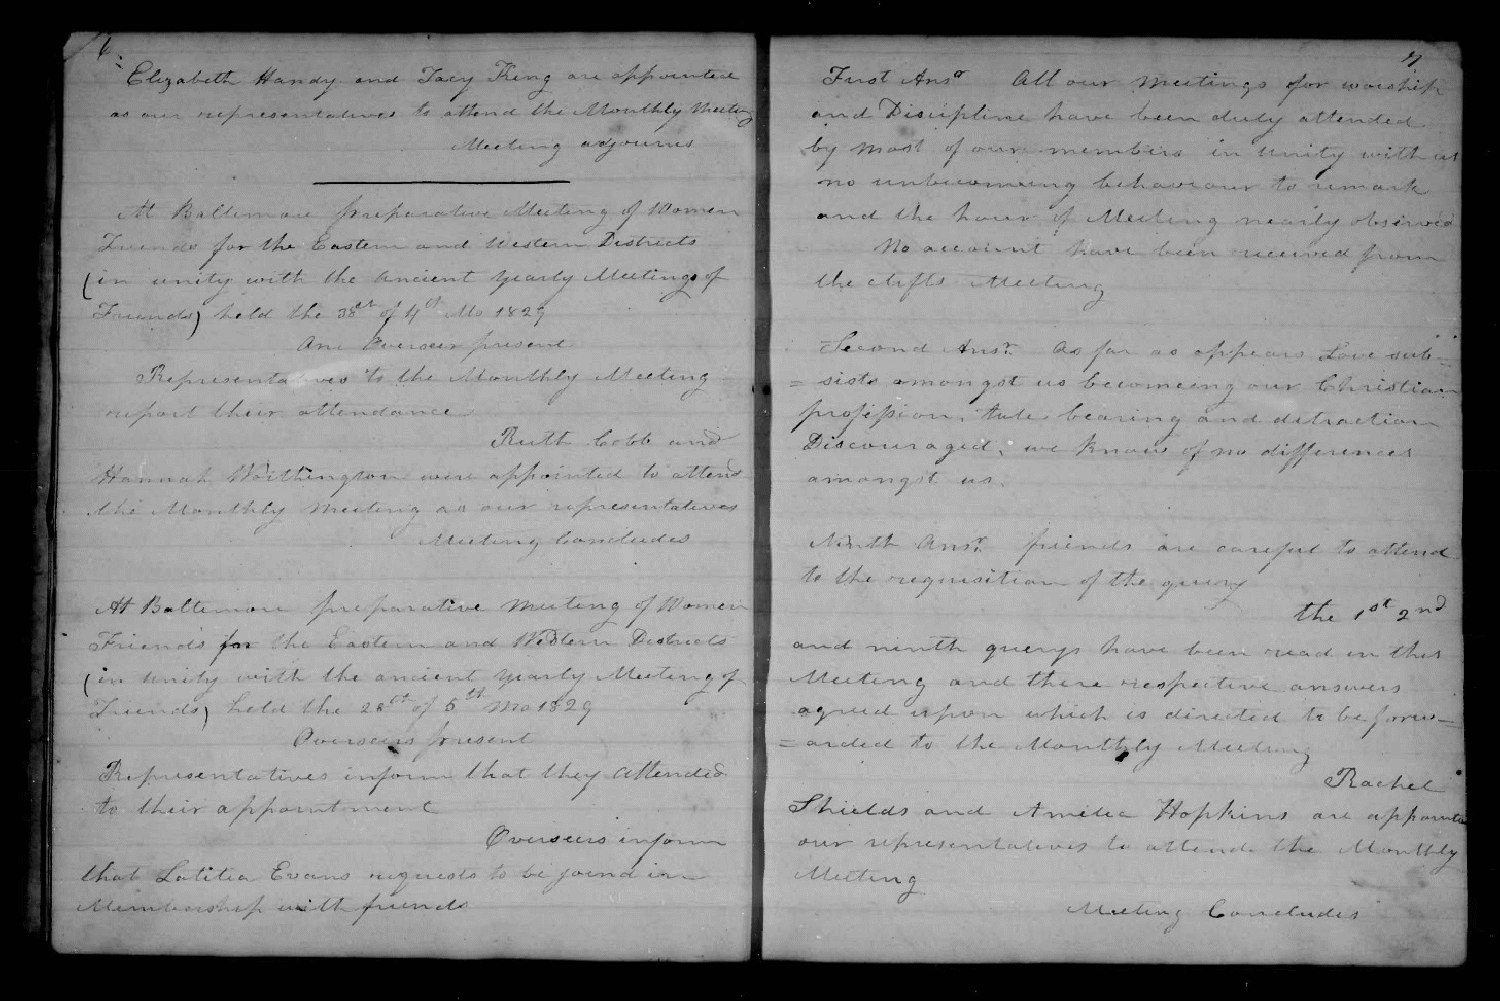 6.
Elizabeth Handy and Tacy King are appointed
as our representatives to attend the Monthly Meeting
Meeting adjourns
At Baltimore preparative Meeting of Women
Friends for the Eastern and Western Districts
(in unity with the ancient yearly Meetings of
Friends) held the of 4th Mo 1829
One Overseer present
Representatives to the Monthly Meeting
report their attendance
Ruth Cobb and
Hannah Worthington were appointed to attend
the Monthly Meeting as our representatives
Meeting Concludes
At Baltimore preparative Meeting of Women
Friends for the Eastern and Western Districts
(in unity with the ancient yearly Meeting of
Friends) held the 28th of 5th Mo 1829
Overseers present
Representatives inform that they attended
to their appointment
Overseers inform
that Latitia Evans requests to be joind in
Membership with friends
7
First Ansr All our meetings for worship
and Discipline have been duly attended
by most of our members in unity with us
no unbecomeing behaviour to remark
and the hour of Meeting nearly observed
No account have been received from
the clifts Meeting
Second Ansr. As far as appears Love sub=
=sists amongst us becomeing our Christian
profession, tale bearing and detraction
Discouraged, we know of no differences
amongst us.
Ninth Ansr. friends are careful to attend
to the requisition of the query
the 1st 2nd
and ninth querys have been read in this
Meeting and there respective answers
agreed upon which is directed to be forw=
=arded to the Monthly Meeting
Rachel
Shields and Amelia Hopkins are appointed
our representatives to attend the Monthly
Meeting
Meeting Concludes